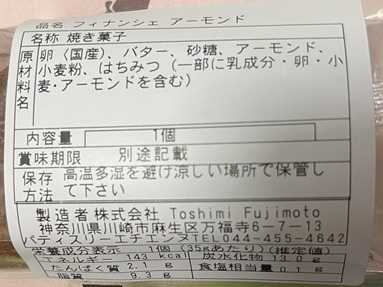 品名 フィナンシェ アーモンド
名称 焼き菓子
原材料名 卵(国産)、バター、砂糖、アーモンド、
小麦粉、はちみつ(一部に乳成分・卵・小
麦・アーモンドを含む)
内容量 1個
賞味期限 別途記載
保存方法 高温多湿を避け涼しい場所で保管し
て下さい
製造者 株式会社 Toshimi Fujimoto
神奈川県川崎市麻生区万福寺6-7-13
パティスリーエチエンヌTEL044-455-4642
栄養成分表示 1個(35gあたり)(推定値)
エネルギー 143 kcal 炭水化物 13.0 g
たんぱく質 2.1 g 食塩相当量 0.1 g
脂質 9.3 g